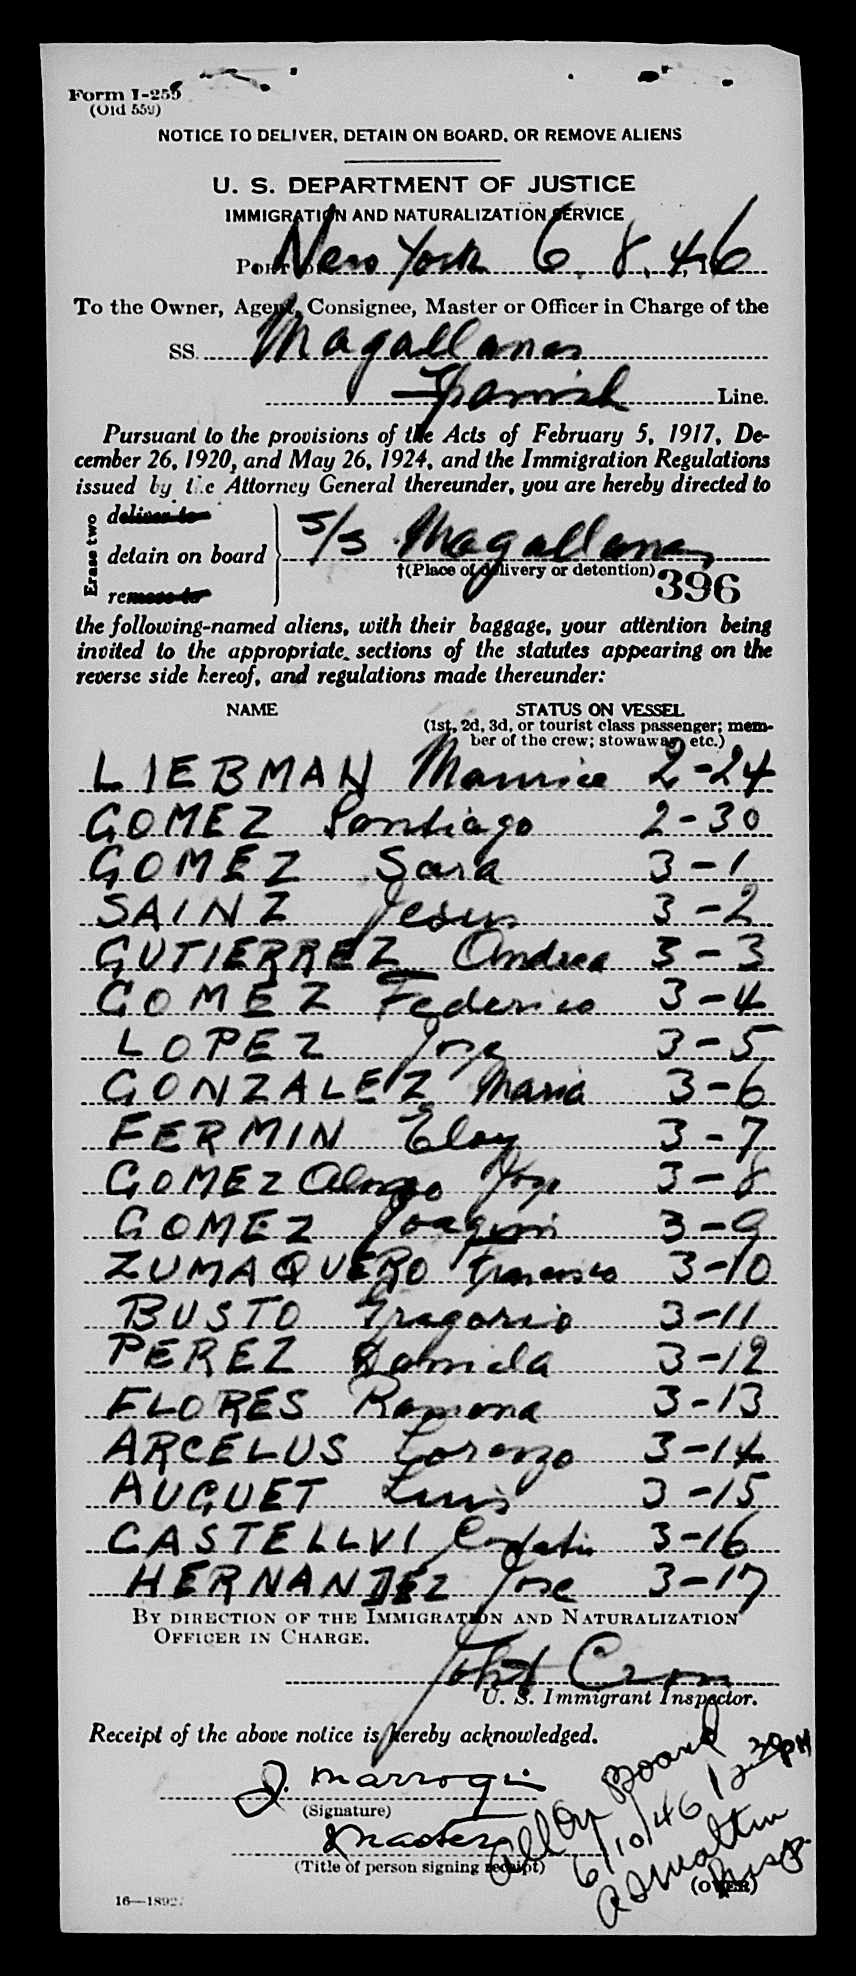 Form I-255
(Old 559)
NOTICE TO DELIVER, DETAIN ON BOARD, OR REMOVE ALIENS
U. S. DEPARTMENT OF JUSTICE
IMMIGRATION AND NATURALIZATION SERVICE
PORT OF New York 6. 8. 46
To the Owner, Agent, Consignee, Master or Officer in Charge of the
SS. Magallanes
Spanish Line.
Pursuant to the provisions of the Acts of February 5, 1917, De-
cember 26, 1920, and May 26, 1924, and the Immigration Regulations
issued by the Attorney General thereunder, you are hereby directed to
Erase two
deliver to
detain on board
remove to
S/S Magallanes
†(Place of delivery or detention)
396
the following-named aliens, with their baggage, your attention being
invited to the appropriate sections of the statutes appearing on the
reverse side hereof, and regulations made thereunder:
NAME STATUS ON VESSEL
(1st, 2d, 3d, or tourist class passenger; mem-
ber of the crew; stowaway, etc.)
LIEBMAN Maurice 2-24
GOMEZ Santiago 2-30
GOMEZ Sara 3-1
SAINZ Jesus 3-2
GUTIERREZ Andrea 3-3
GOMEZ Federico 3-4
LOPEZ Jose 3-5
GONZALEZ Maria 3-6
FERMIN Eloy 3-7
GOMEZ Alonso Jose 3-8
GOMEZ Joaquin 3-9
ZUMAQUERO Francisco 3-10
BUSTO Gregorio 3-11
PEREZ Daniela 3-12
FLORES Ramona 3-13
ARCELUS Lorenzo 3-14
AUGUET Luis 3-15
CASTELLVI 3-16
HERNANDEZ Jose 3-17
BY DIRECTION OF THE IMMIGRATION AND NATURALIZATION
OFFICER IN CHARGE.
U. S. Immigrant Inspector.
Receipt of the above notice is hereby acknowledged.
J. Marrogi
(Signature)
Master
(Title of person signing receipt)
All On Board
6/10/46 12 30 PM
Insp.
(OVER)